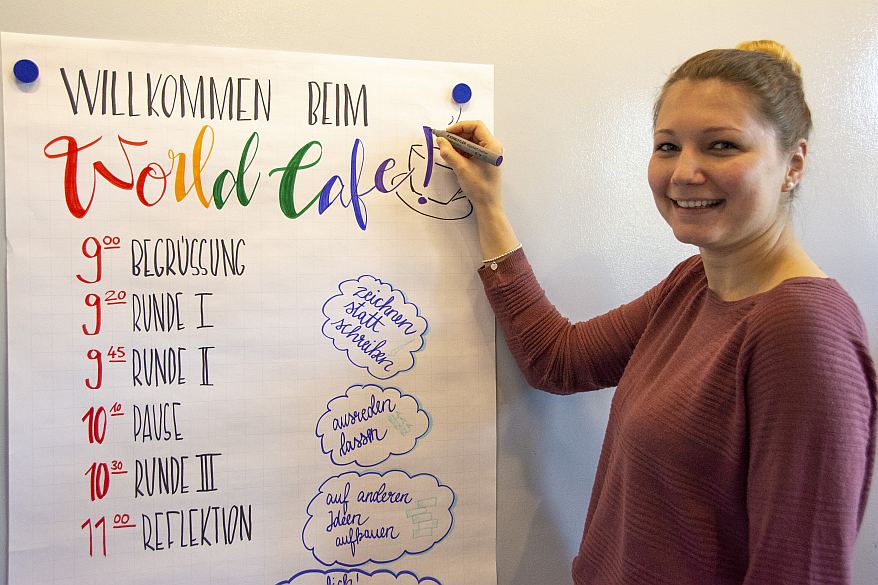 WILLKOMMEN BEIM
World Cafe!
9⁰⁰ BEGRÜSSUNG
9²⁰ RUNDE I
9⁴⁵ RUNDE II
10¹⁰ PAUSE
10³⁰ RUNDE III
11⁰⁰ REFLEKTION
zeichnen
statt
schreiben
ausreden
lassen
auf anderen
Ideen
aufbauen